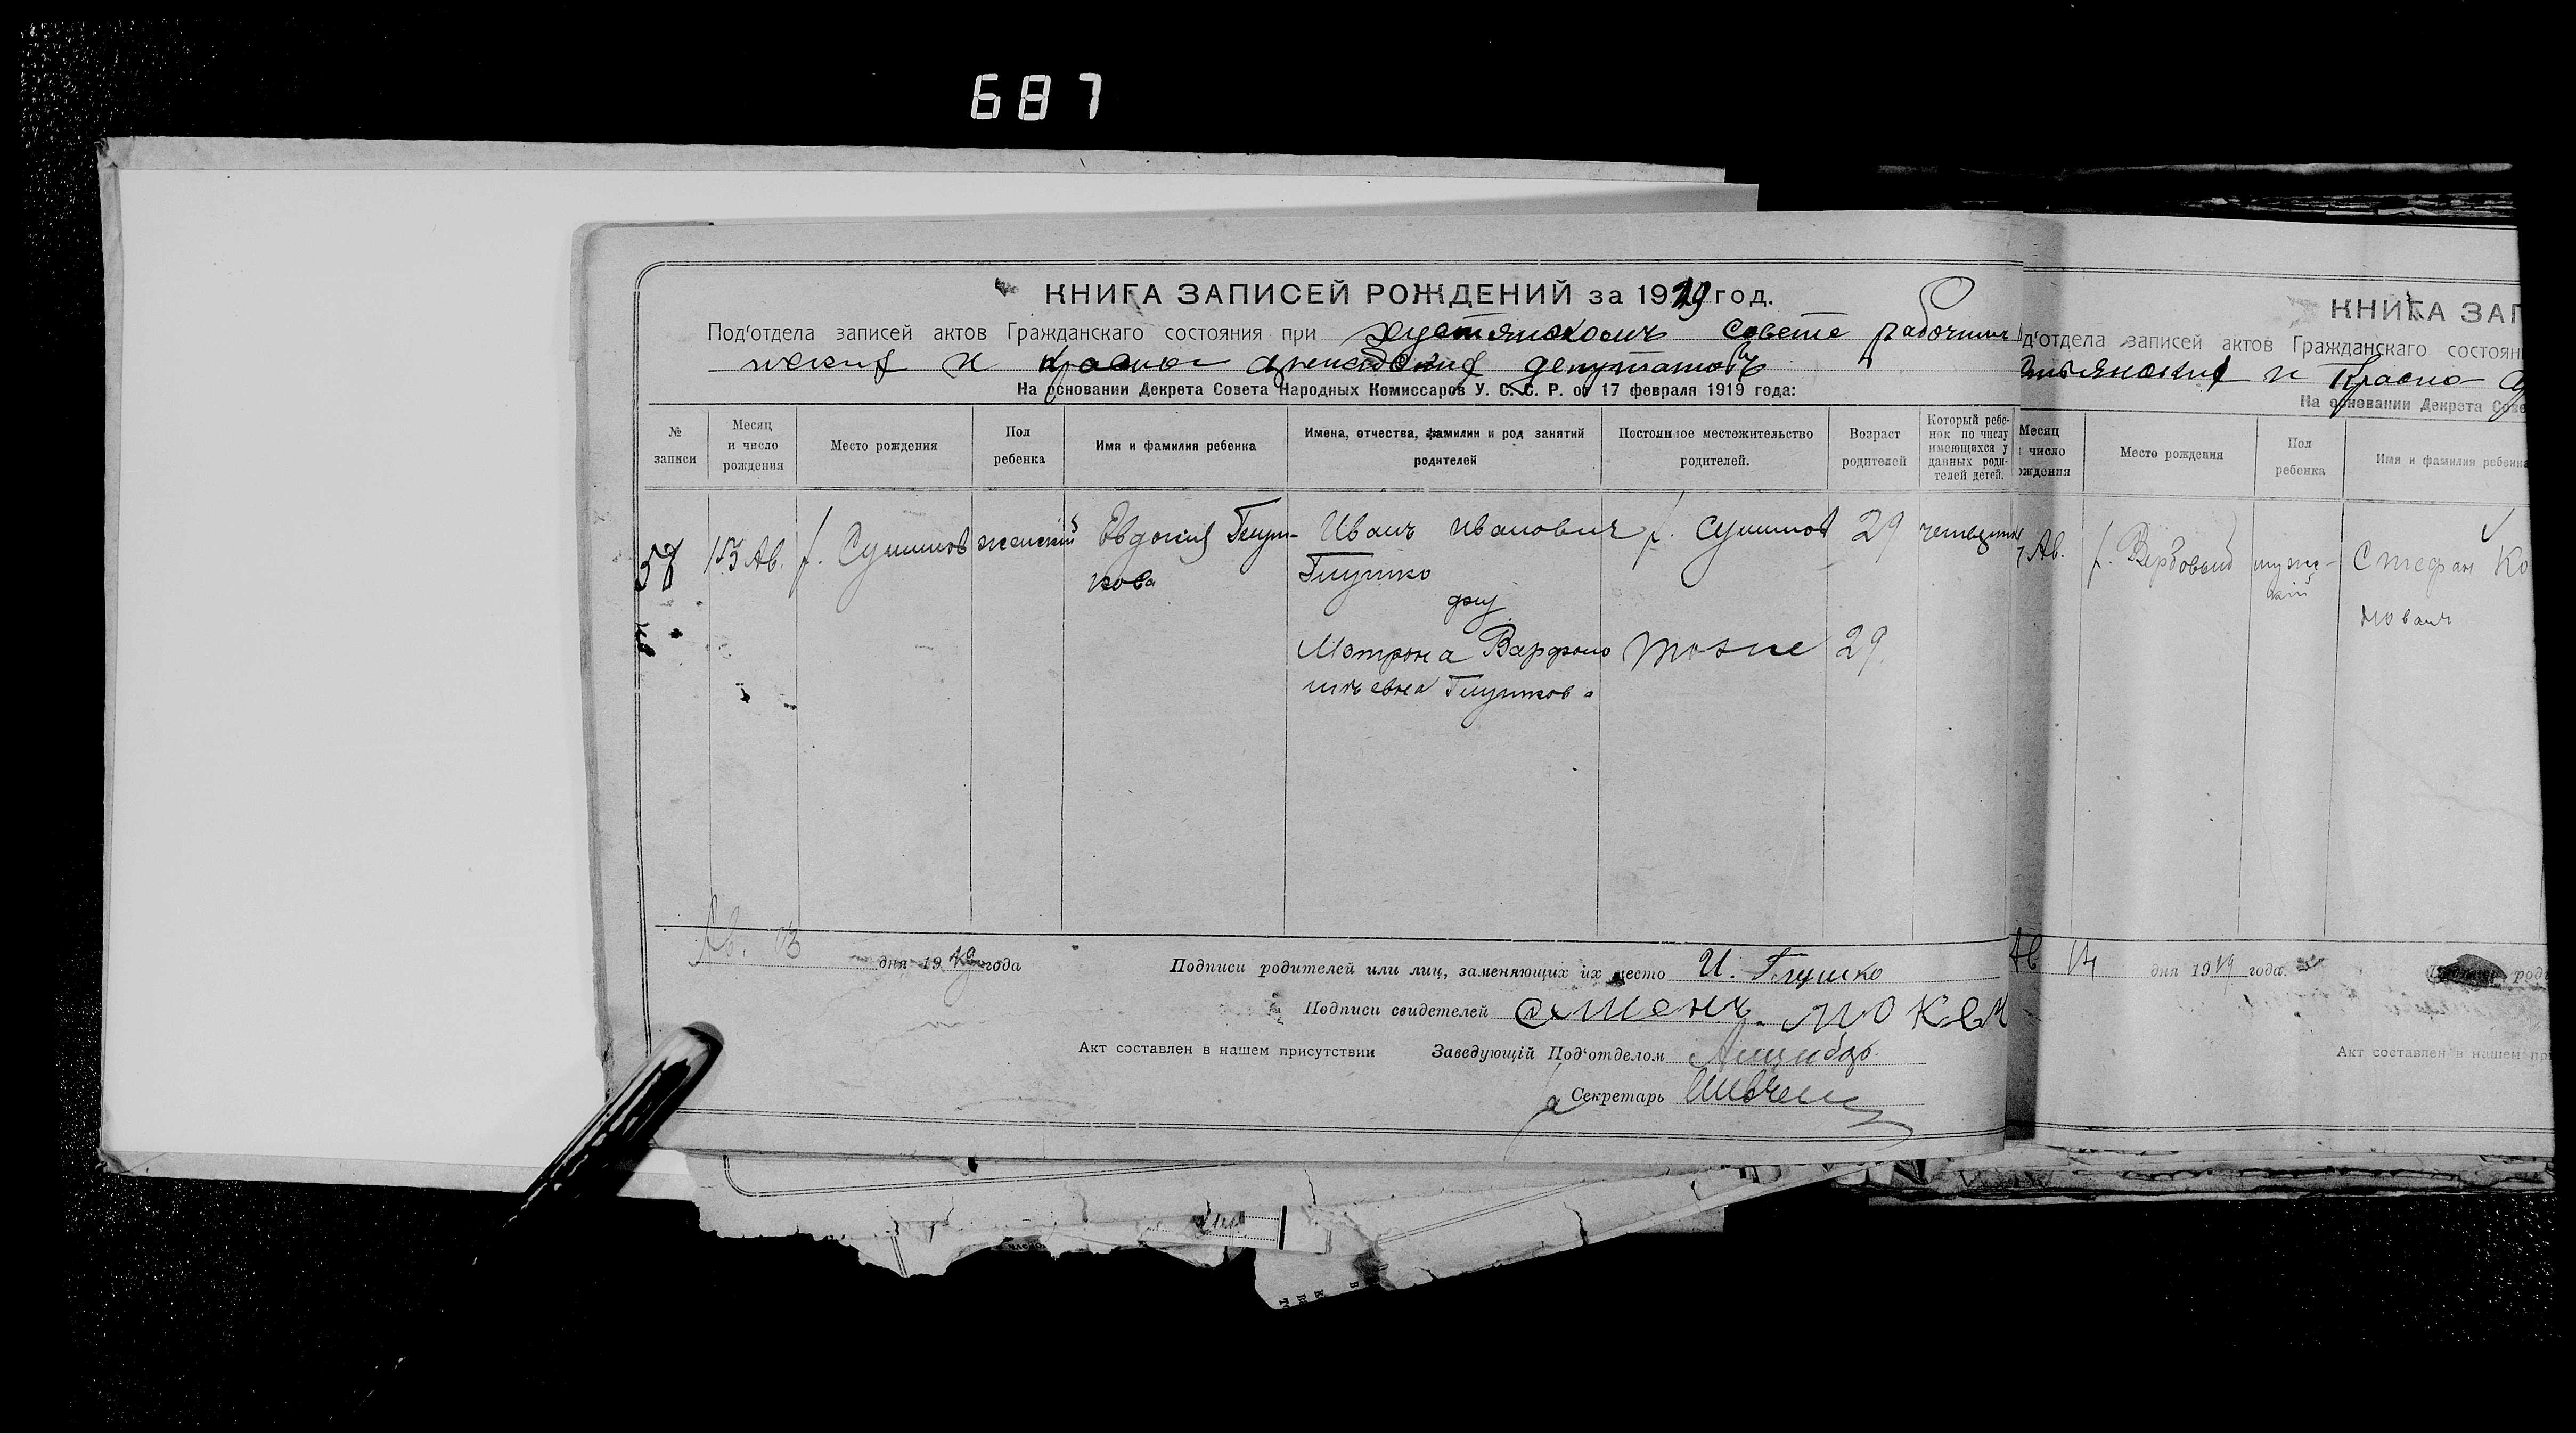 687
КНИГА ЗАПИСЕЙ РОЖДЕНИЙ за 1919 год.
Под'отдела записей актов Гражданскаго состояния при Хустянскомъ Совете рабочих
ских и Красно армейских депутатовъ
На основании Декрета Совета Народных Комиссаров У. С. С. Р. от 17 февраля 1919 года:
№ записи
Месяц и число рождения
Место рождения
Пол ребенка
Имя и фамилия ребенка
Имена, отчества, фамилии и род занятий родителей
Постоянное местожительство родителей.
Возраст родителей
Который ребенок по числу имеющихся у данных родителей детей.
58
Ав.
Сушков
женский
Евдокия Глуш-
кова
Иванъ Иванович
Глушко
29
Матрона Варфоло
меевна Глушкова
тоже
29.
Ав. 13 дня 1919 года
Подписи родителей или лиц, заменяющих их место И. Глушко
Подписи свидетелей
Акт составлен в нашем присутствии Заведующій Под'отделом
Секретарь
КНИГА ЗАП
д'отдела записей актов Гражданскаго состоян
и Красно-
На основании Декрета Сове
Месяц
число
ождения
Место рождения
Пол ребенка
Имя и фамилия ребенка
Ав.
Вербовой
муже-
ский
Стефан Ко
Ав 14 дня 1919 года.
Акт составлен в нашем пр